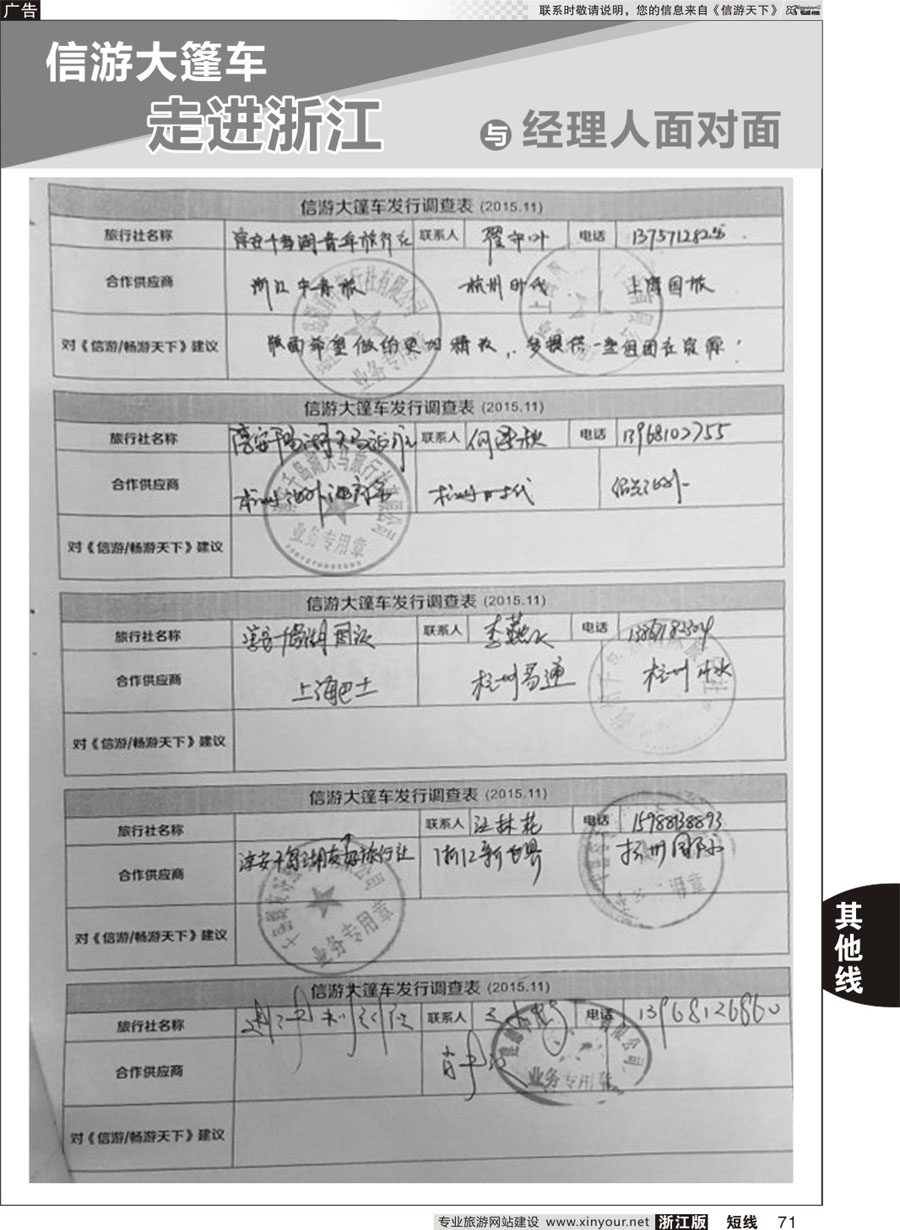 广告
联系时敬请说明，您的信息来自《信游天下》
信游大篷车
走进浙江
与 经理人面对面
信游大篷车发行调查表 (2015.11)
旅行社名称 淳安千岛湖青年旅行社 联系人 电话
合作供应商 浙江中青旅 杭州时代 上海国旅
对《信游/畅游天下》建议 版面希望做的更加精致，多提供一些组团社资源！
信游大篷车发行调查表 (2015.11)
旅行社名称 淳安千岛湖天马旅行社 联系人 电话 13968102755
合作供应商 杭州海外旅游 杭州时代 绍兴海外
千岛湖天马旅行社有限公司
业务专用章
对《信游/畅游天下》建议
信游大篷车发行调查表 (2015.11)
旅行社名称 淳安千岛湖国旅 联系人 电话
合作供应商 上海巴士 杭州易通 杭州
对《信游/畅游天下》建议
信游大篷车发行调查表 (2015.11)
旅行社名称 联系人 汪林花 电话 15988138893
合作供应商 淳安千岛湖友好旅行社 浙江新世界 杭州
业务专用章
对《信游/畅游天下》建议
信游大篷车发行调查表 (2015.11)
旅行社名称 联系人 电话 13968126860
合作供应商
业务专用章
对《信游/畅游天下》建议
其他线
专业旅游网站建设 www.xinyour.net 浙江版 短线 71